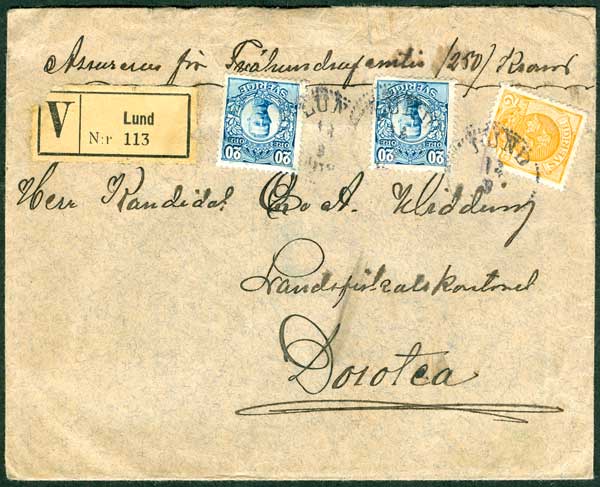 Assureras för Tvåhundrafemtio /250/ Kronor
V Lund
N:r 113
SVERIGE
20 20
SVERIGE
20 20
SVERIGE
LUND
LUND
Herr Kandidat
Landsfiskalskontoret
Dorotea